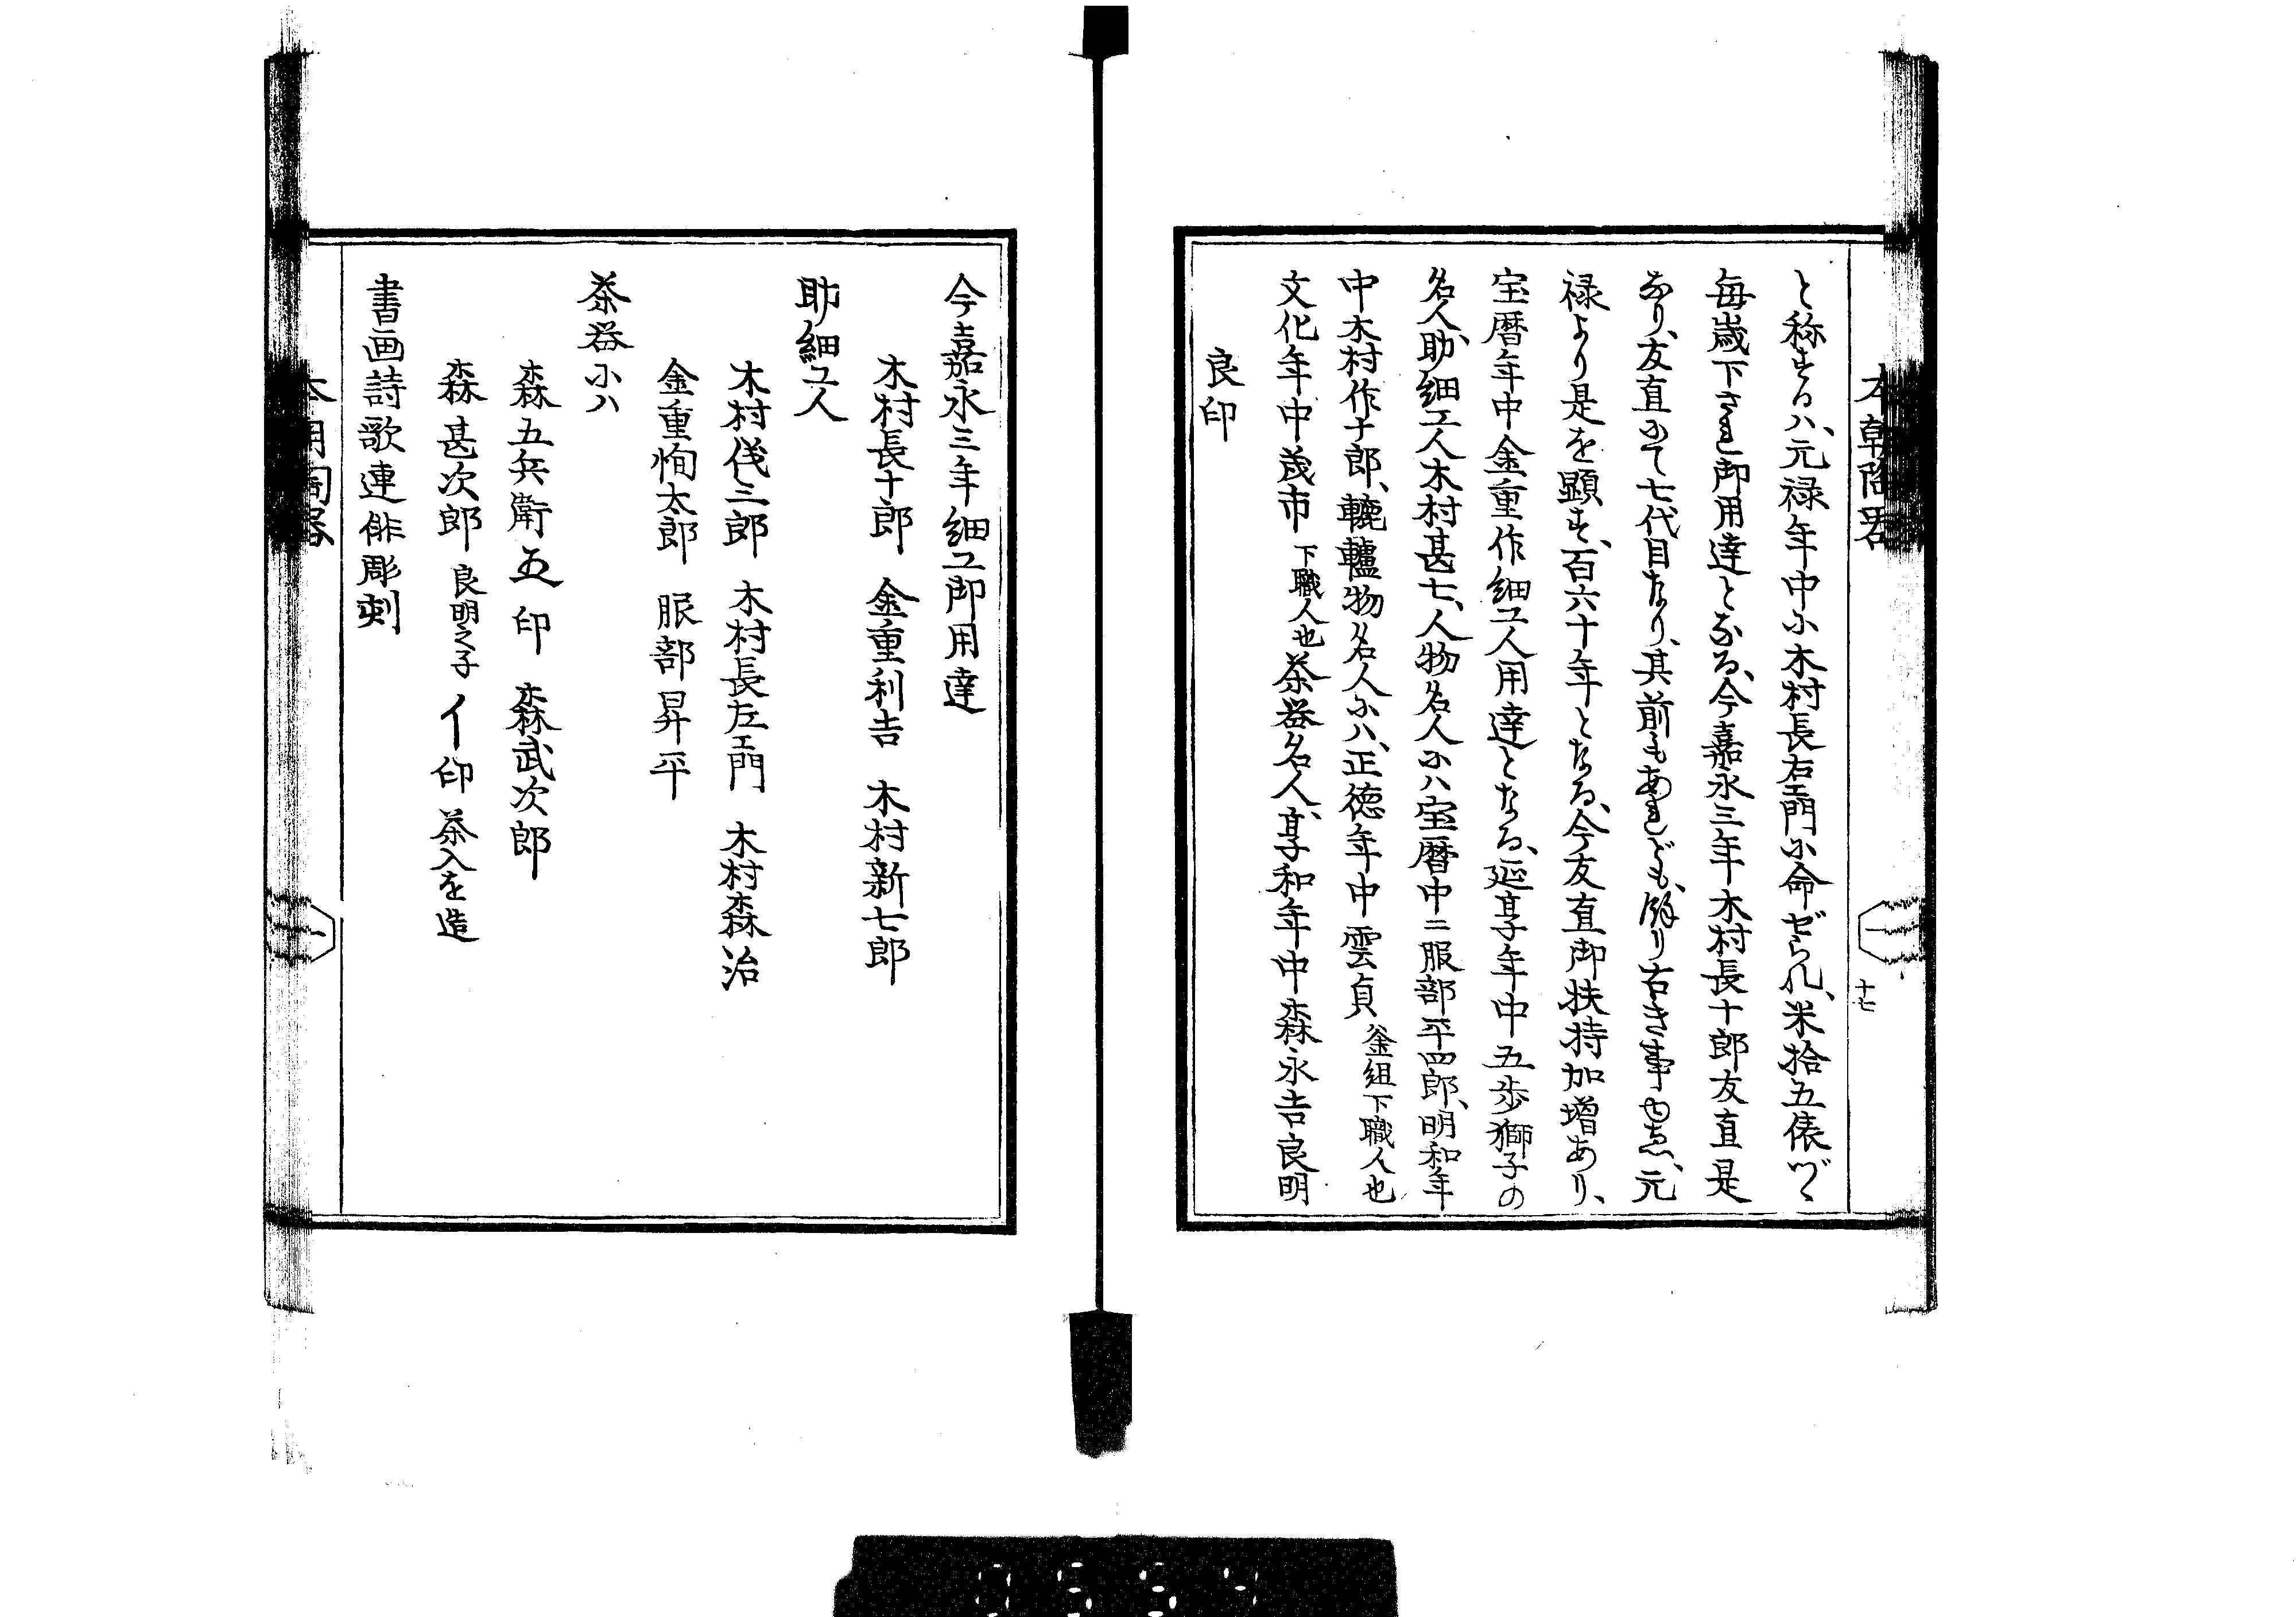 十七
と称するハ、元禄年中に木村長右エ門に命ぜられ、米拾五俵づゝ
毎歳下され御用達となる、今嘉永三年木村長十郎友直是
なり、友直にて七代目なり、其前もあれども、餘り古き事ゆゑ、元
禄より是を顕す、百六十年となる、今友直御扶持加増あり、
宝暦年中金重作細工人用達となる、延享年中五歩獅子の
名人、助細工人木村甚七、人物名人にハ宝暦中ニ服部平四郎、明和年
中木村作十郎、轆轤物名人にハ、正徳年中雲貞 釜組下職人也
文化年中茂市 下職人也 茶器名人、享和年中森永吉良明
良印
今嘉永三年細工御用達
木村長十郎 金重利吉 木村新七郎
助細工人
木村伐三郎 木村長左エ門 木村森治
金重恂太郎 服部昇平
茶器にハ
森五兵衛 五印 森武次郎
森甚次郎 良明之子 イ印 茶入を造
書画詩歌連俳彫刻